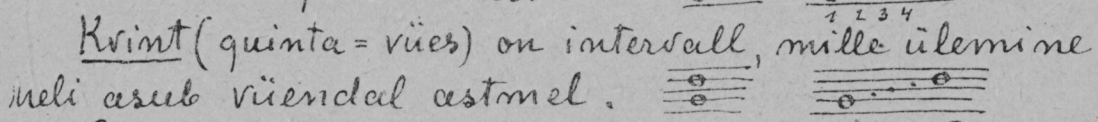 1 2 3 4
Kvint (quinta = viies) on intervall, mille ülemine
heli asub viiendal astmel.